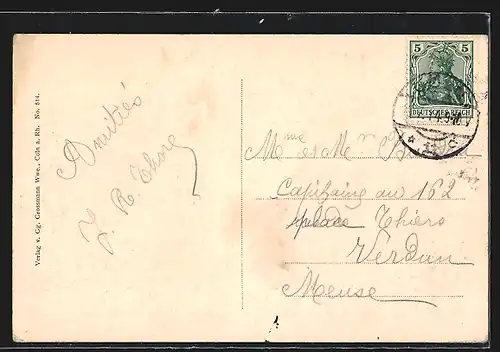 5
5
DEUTSCHES REICH
Amitiés
Verlag v. Gg. Grossmann Wwe., Cöln a. Rh. No. 514.
Mme et Mr
Capitaine au 162
place Thiers
Verdun
Meuse